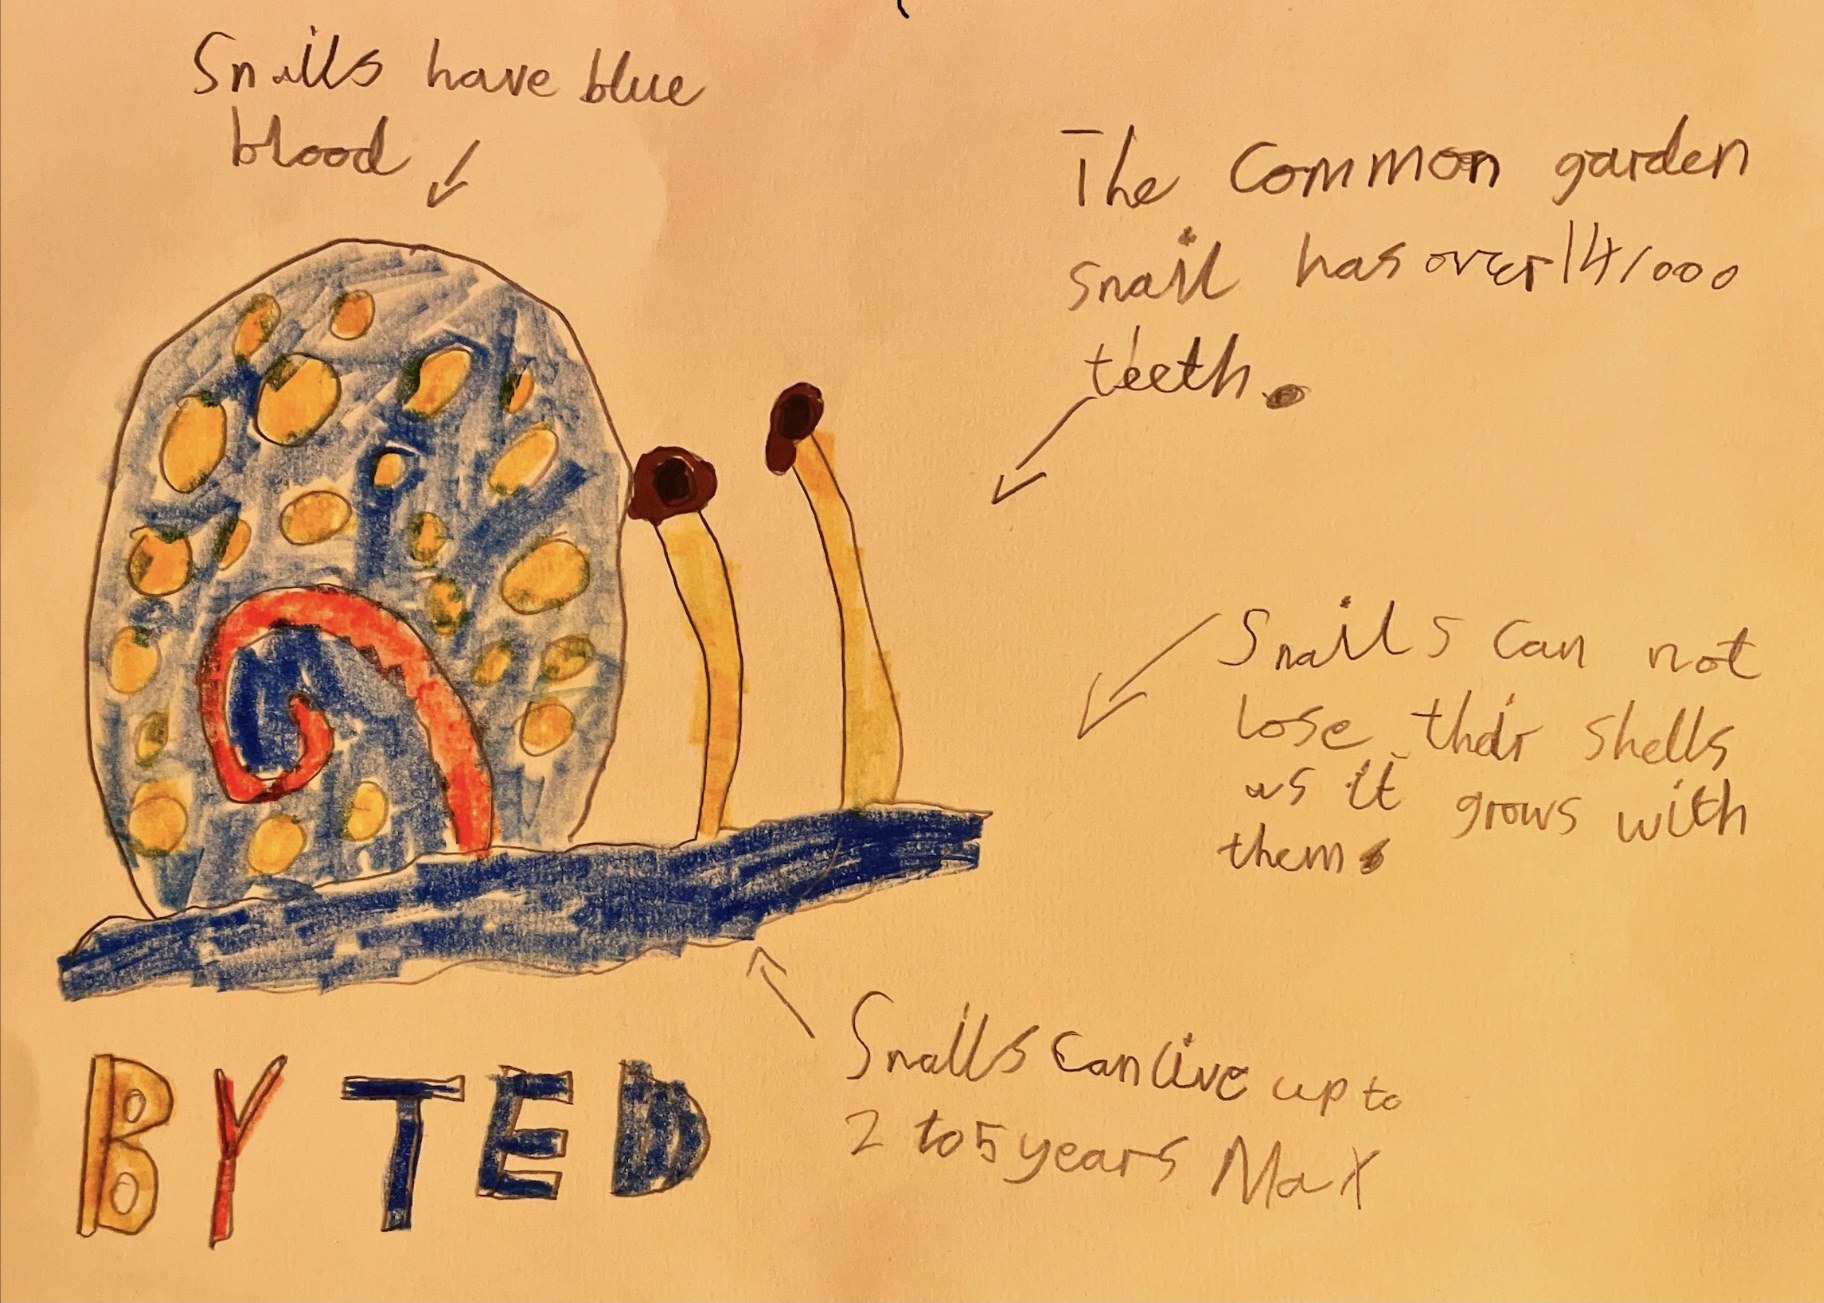 Snails have blue
blood
The Common garden
snail has over 14,000
teeth.
Snails can not
lose their shells
as it grows with
them.
Snails can live up to
2 to 5 years Max
BY TED